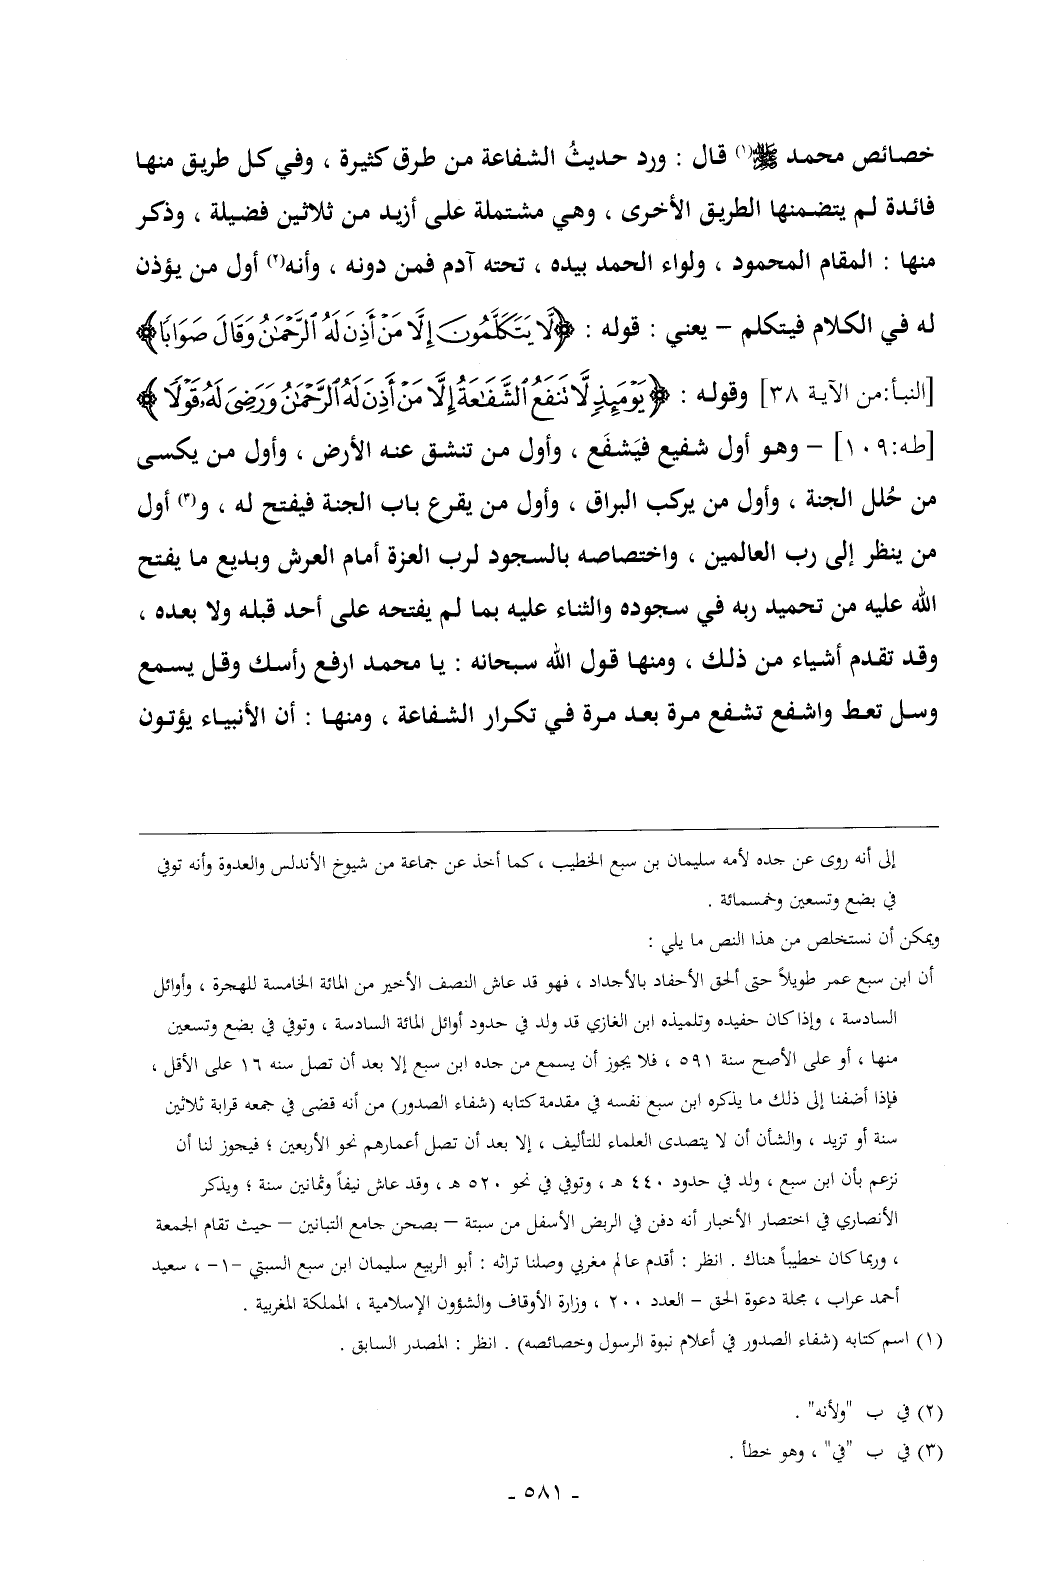 خصائص محمد ﷺ(١) قال : ورد حديثُ الشفاعة من طرق كثيرة ، وفي كل طريق منها
فائدة لم يتضمنها الطريق الأخرى ، وهي مشتملة على أزيد من ثلاثين فضيلة ، وذكر
منها : المقام المحمود ، ولواء الحمد بيده ، تحته آدم فمن دونه ، وأنه(٢) أول من يؤذن
له في الكلام فيتكلم – يعني : قوله : ﴿لَّا يَتَكَلَّمُونَ إِلَّا مَنْ أَذِنَ لَهُ ٱلرَّحْمَٰنُ وَقَالَ صَوَابًا﴾
[النبأ:من الآية ٣٨] وقوله : ﴿يَوْمَئِذٍ لَّا تَنفَعُ ٱلشَّفَٰعَةُ إِلَّا مَنْ أَذِنَ لَهُ ٱلرَّحْمَٰنُ وَرَضِىَ لَهُۥ قَوْلًا﴾
[طه:١٠٩] – وهو أول شفيع فيَشفَع ، وأول من تنشق عنه الأرض ، وأول من يكسى
من حُلل الجنة ، وأول من يركب البراق ، وأول من يقرع باب الجنة فيفتح له ، و(٣) أول
من ينظر إلى رب العالمين ، واختصاصه بالسجود لرب العزة أمام العرش وبديع ما يفتح
الله عليه من تحميد ربه في سجوده والثناء عليه بما لم يفتحه على أحد قبله ولا بعده ،
وقد تقدم أشياء من ذلك ، ومنها قول الله سبحانه : يا محمد ارفع رأسك وقل يسمع
وسل تعط واشفع تشفع مرة بعد مرة في تكرار الشفاعة ، ومنها : أن الأنبياء يؤتون
إلى أنه روى عن جده لأمه سليمان بن سبع الخطيب ، كما أخذ عن جماعة من شيوخ الأندلس والعدوة وأنه توفي
في بضع وتسعين وخمسمائة .
ويمكن أن نستخلص من هذا النص ما يلي :
أن ابن سبع عمر طويلاً حتى ألحق الأحفاد بالأجداد ، فهو قد عاش النصف الأخير من المائة الخامسة للهجرة ، وأوائل
السادسة ، وإذا كان حفيده وتلميذه ابن الغازي قد ولد في حدود أوائل المائة السادسة ، وتوفي في بضع وتسعين
منها ، أو على الأصح سنة ٥٩١ ، فلا يجوز أن يسمع من جده ابن سبع إلا بعد أن تصل سنه ١٦ على الأقل ،
فإذا أضفنا إلى ذلك ما يذكره ابن سبع نفسه في مقدمة كتابه (شفاء الصدور) من أنه قضى في جمعه قرابة ثلاثين
سنة أو تزيد ، والشأن أن لا يتصدى العلماء للتأليف ، إلا بعد أن تصل أعمارهم نحو الأربعين ؛ فيجوز لنا أن
نزعم بأن ابن سبع ، ولد في حدود ٤٤٠ هـ ، وتوفي في نحو ٥٢٠ هـ ، وقد عاش نيفاً وثمانين سنة ؛ ويذكر
الأنصاري في اختصار الأخبار أنه دفن في الربض الأسفل من سبتة – بصحن جامع التبانين – حيث تقام الجمعة
، وربما كان خطيباً هناك . انظر : أقدم عالم مغربي وصلنا تراثه : أبو الربيع سليمان ابن سبع السبتي -١- ، سعيد
أحمد عراب ، مجلة دعوة الحق – العدد ٢٠٠ ، وزارة الأوقاف والشؤون الإسلامية ، المملكة المغربية .
(١) اسم كتابه (شفاء الصدور في أعلام نبوة الرسول وخصائصه) . انظر : المصدر السابق .
(٢) في ب "ولأنه" .
(٣) في ب "في" ، وهو خطأ .
- ٥٨١ -